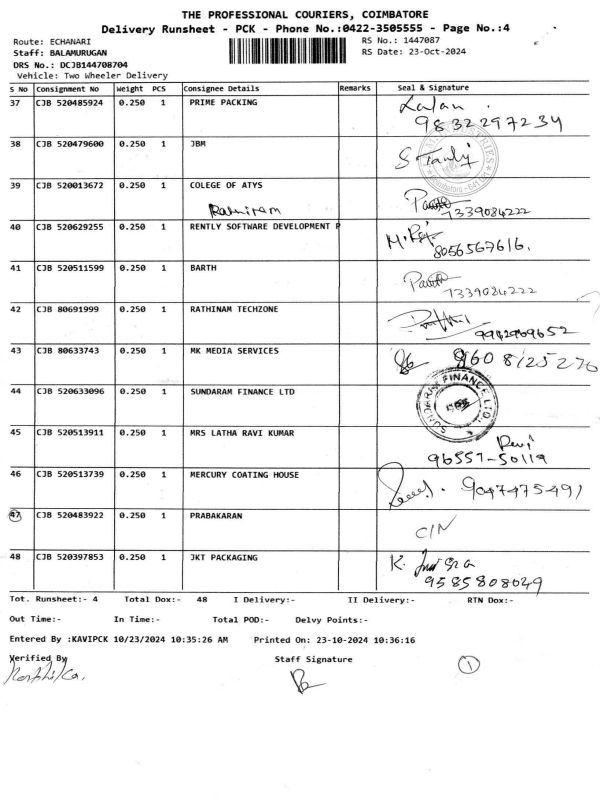 THE PROFESSIONAL COURIERS, COIMBATORE
Delivery Runsheet - PCK - Phone No.:0422-3505555 - Page No.:4
Route: ECHANARI RS No.: 1447087
Staff: BALAMURUGAN RS Date: 23-Oct-2024
DRS No.: DCJB144708704
Vehicle: Two Wheeler Delivery
S No Consignment No Weight PCS Consignee Details Remarks Seal & Signature
37 CJB 520485924 0.250 1 PRIME PACKING
9832297234
38 CJB 520479600 0.250 1 JBM
39 CJB 520013672 0.250 1 COLEGE OF ATYS
7339084222
40 CJB 520629255 0.250 1 RENTLY SOFTWARE DEVELOPMENT P
8056567616.
41 CJB 520511599 0.250 1 BARTH
7339084222
42 CJB 80691999 0.250 1 RATHINAM TECHZONE
43 CJB 80633743 0.250 1 MK MEDIA SERVICES 9608125276
44 CJB 520633096 0.250 1 SUNDARAM FINANCE LTD SUNDARAM FINANCE LTD.
45 CJB 520513911 0.250 1 MRS LATHA RAVI KUMAR
96557-50119
46 CJB 520513739 0.250 1 MERCURY COATING HOUSE 9047475491
47 CJB 520483922 0.250 1 PRABAKARAN C/N
48 CJB 520397853 0.250 1 JKT PACKAGING
9585808049
Tot. Runsheet:- 4 Total Dox:- 48 I Delivery:- II Delivery:- RTN Dox:-
Out Time:- In Time:- Total POD:- Delvy Points:-
Entered By :KAVIPCK 10/23/2024 10:35:26 AM Printed On: 23-10-2024 10:36:16
Verified By Staff Signature 1